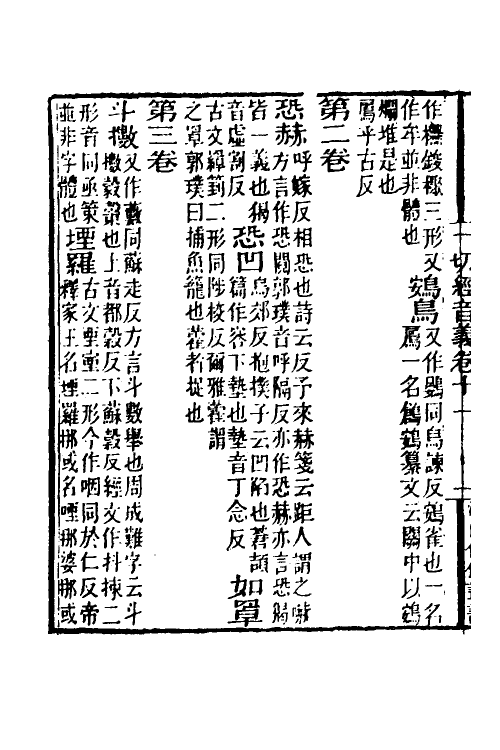 一切經音義卷十一
作櫸錽鄒三形又
作牟並非體也
鴳鳥又作鷃同烏諫反鴳雀也一名
鳸一名鴳鶉纂文云關中以鴳
爛堆是也
鳸乎古反
第二卷
恐赫呼嫁反相恐也詩云反予來赫箋云距人謂之嚇
方言作恐鬩郭璞音呼隔反亦作恐赫亦言恐猲
皆一義也猲
音虛割反
恐凹烏郊反抱撲子云凹陷也蒼頡
篇作容下墊也墊音丁念反
如罩
古文䍜䈇二形同陟校反爾雅藋謂
之罩郭璞曰捕魚籠也藋者捉也
第三卷
斗擻又作藪同蘇走反方言斗擻舉也周成難字云斗
擻㯩也上音都穀反下蘇穀反經文作抖揀二
形音同丞策
並非字體也
堙羅古文垔𡍫二形今作咽同於仁反帝
釋象王名堙羅挪或名哩挪婆挪或